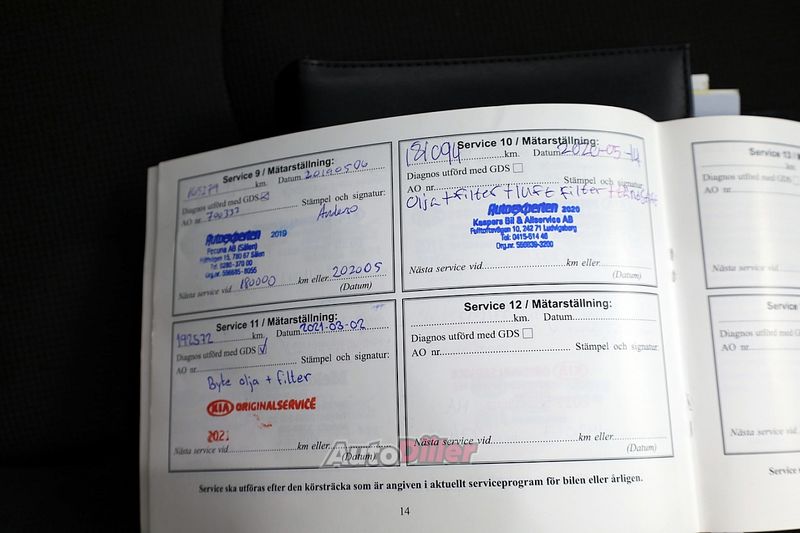 Service 9 / Mätarställning:
165279 km. Datum 20190506
Diagnos utförd med GDS
AO nr. 700333 Stämpel och signatur:
Anders
Autoexperten 2019
Pecuna AB (Sälen)
780 67 Sälen
Tel: 0280-370 00
Org.nr. 556685-8055
Nästa service vid 180000 km eller 202005
(Datum)
Service 10 / Mätarställning:
181094 km. Datum 2020-05-14
Diagnos utförd med GDS
AO nr. Stämpel och signatur:
Olja + filter + luft filter +
Autoexperten 2020
Kaspers Bil & Allservice AB
Fulltoftavägen 10, 242 71 Ludvigsborg
Tel: 0415-514 46
Org.nr. 556639-3200
Nästa service vid km eller
(Datum)
Service 11 / Mätarställning:
192572 km. Datum 2021-03-02
Diagnos utförd med GDS
AO nr. Stämpel och signatur:
Byte olja + filter
KIA ORIGINALSERVICE
2021
Nästa service vid km eller
(Datum)
Service 12 / Mätarställning:
km. Datum
Diagnos utförd med GDS
AO nr. Stämpel och signatur:
Nästa service vid km eller
(Datum)
AutoDiller
Service ska utföras efter den körsträcka som är angiven i aktuellt serviceprogram för bilen eller årligen.
14
Service 13 /
Diagnos utförd med GDS
AO nr.
Nästa service vid
Service
Diagnos utförd med GDS
AO nr.
Nästa service vid
Service